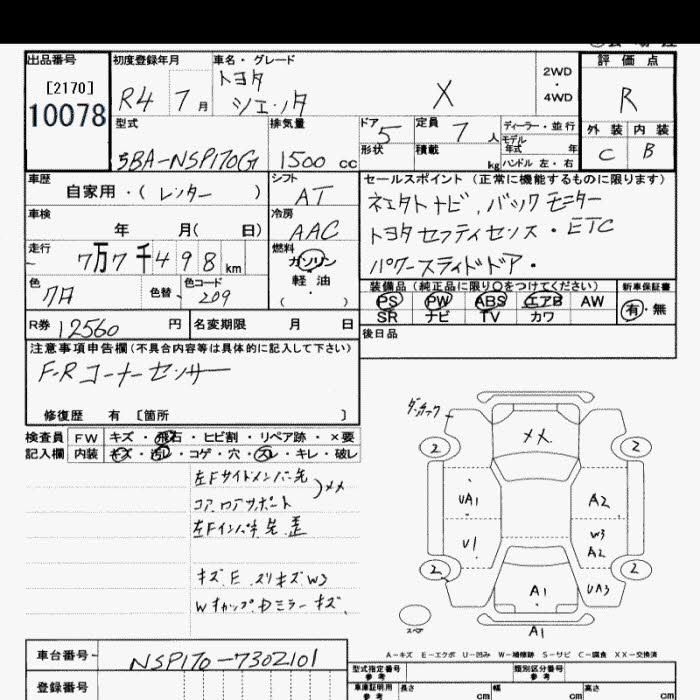 出品番号 初度登録年月 車名・グレード 評価点
[2170] トヨタ 2WD
10078 R4 7月 シエンタ X ・ R
4WD
型式 排気量 ドア 5 定員 7人 ディーラー・並行 外装 内装
モデル年式 年
5BA-NSP170G 1500cc 形状 積載 kg ハンドル 左・右 C B
車歴 シフト セールスポイント(正常に機能するものに限ります)
自家用・(レンター) AT ネクタトナビ, バックモニター
車検 冷房 トヨタセフティセンス・ETC
年 月( 日) AAC パワースライドドア・
走行 燃料
7万7千498km ガソリン
・
軽油
( )
色 色替 色コード 装備品(純正品に限り○をつけてください) 新車保証書
クロ 209 PS PW ABS エアB AW 有・無
SR ナビ TV カワ
R券 12560円 名変期限 月 日 後日品
注意事項申告欄(不具合内容等は具体的に記入して下さい)
F-Rコーナーセンサー
修復歴 有 [箇所 ]
検査員 FW キズ・飛石・ヒビ割・リペア跡・×要
記入欄 内装 キズ・汚レ・コゲ・穴・スレ・キレ・破レ
左Fサイドメンバー先
コアロアサポート )メメ
左Fインパネ先歪
キズ,E スリキズW3
Wキャップ,Dミラーキズ,
メメ
2 2
UA1 A2
U1 W3
A2
2 2
A1 UA3
スペア A1
A-キズ E-エクボ U-凹み W-補修跡 S-サビ C-腐食 XX-交換済
車台番号 NSP170-7302101
登録番号
型式指定番号 参考 類別区分番号 参考
車庫証明用 参考 長さ cm 幅 cm 高さ cm